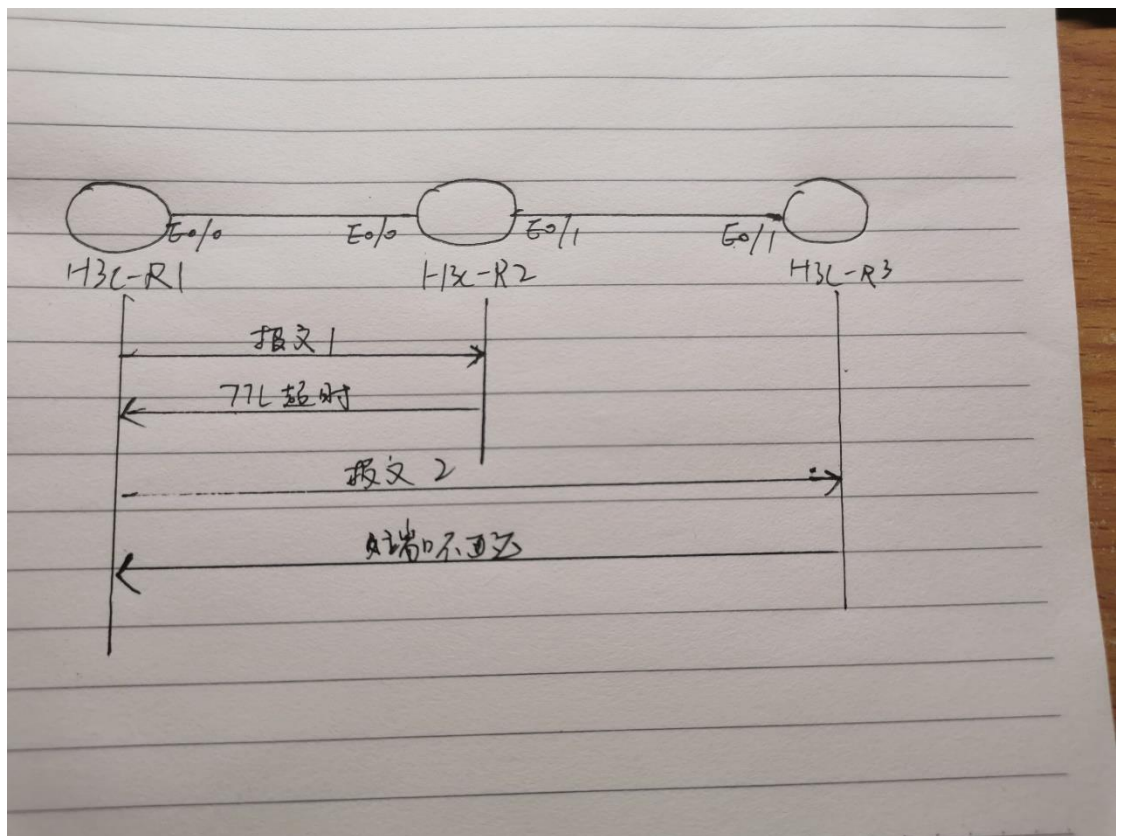 E0/0 E0/0 E0/1 E0/1
H3C-R1 H3C-R2 H3C-R3
报文1
TTL超时
报文2
端口不可达